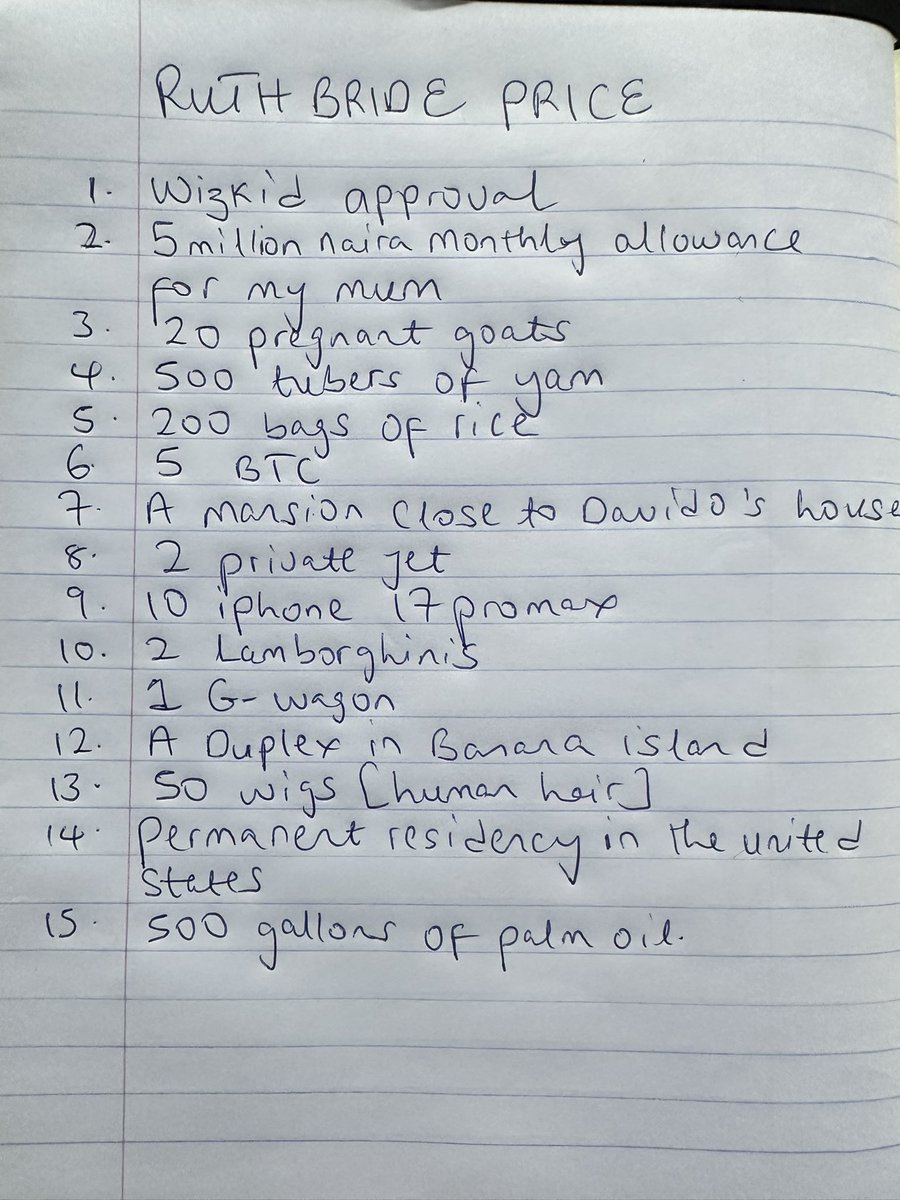 RUTH BRIDE PRICE
1. Wizkid approval
2. 5 million naira monthly allowance
for my mum
3. 20 pregnant goats
4. 500 tubers of yam
5. 200 bags of rice
6. 5 BTC
7. A mansion close to Davido's house
8. 2 private jet
9. 10 iphone 17 promax
10. 2 Lamborghinis
11. 1 G-wagon
12. A Duplex in Banana island
13. 50 wigs [human hair]
14. permanent residency in the united
states
15. 500 gallons of palm oil.